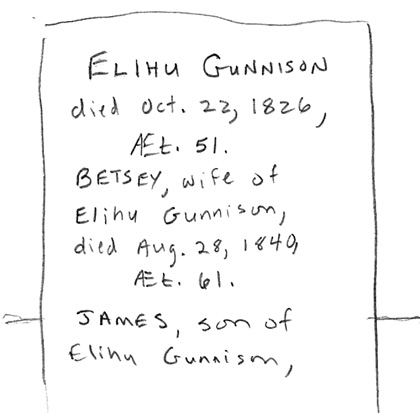 ELIHU GUNNISON
died Oct. 22, 1826,
Æt. 51.
BETSEY, wife of
Elihu Gunnison,
died Aug. 28, 1840,
Æt. 61.
JAMES, son of
Elihu Gunnison,